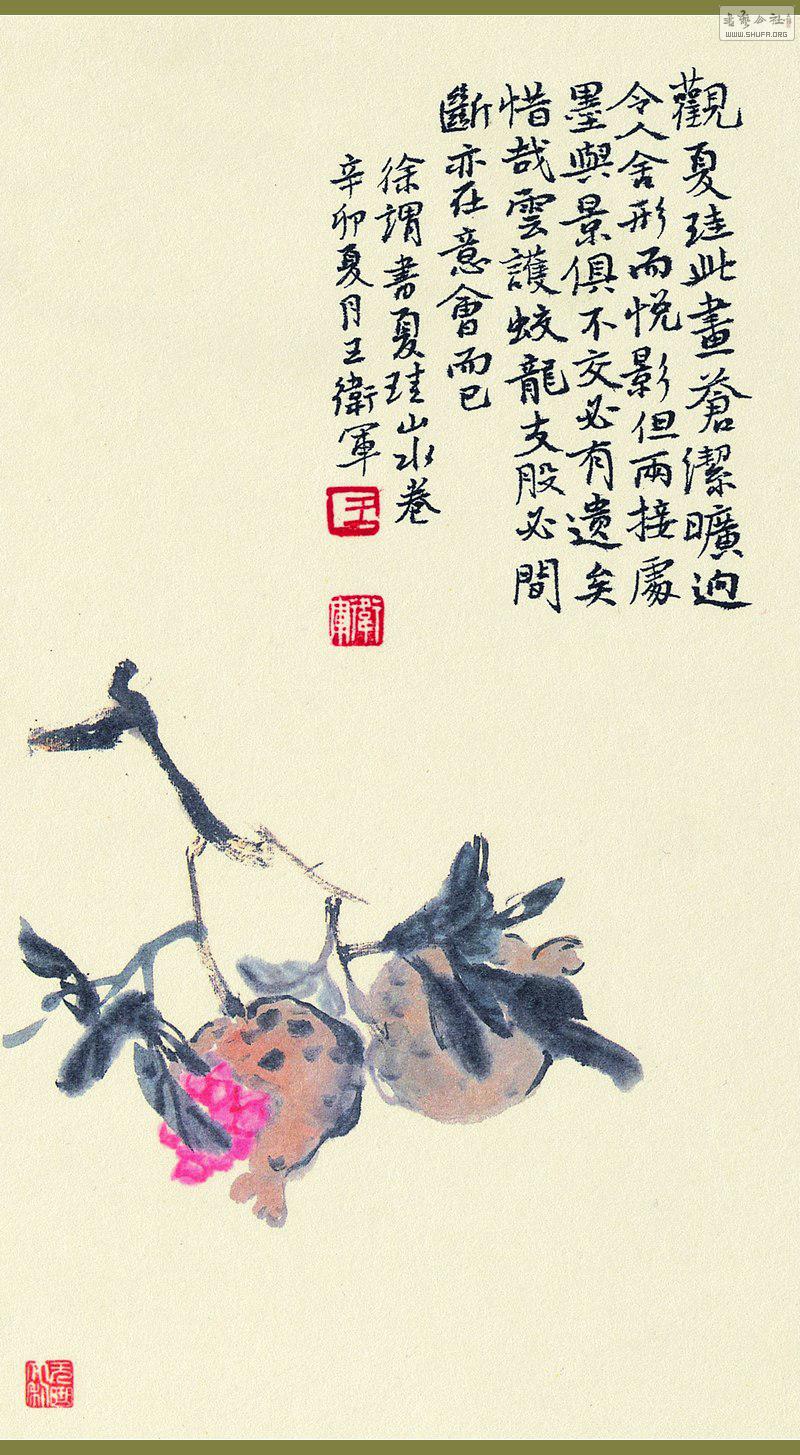 觀夏珪此畫蒼潔曠迥
令人舍形而悅影但兩接處
墨與景俱不交必有遺矣
惜哉雲護蛟龍支股必間
斷亦在意會而已
徐謂書夏珪山水卷
辛卯夏月王衛軍
王
衛軍
WWW.SHUFA.ORG